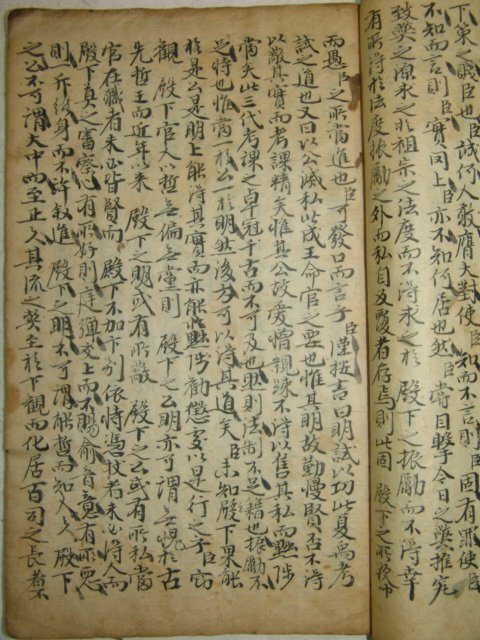 下第一賤臣也誠何人敢膺大對使臣知而不言則臣固有罪使臣
不知而言則臣實罔上臣亦不知何居也然臣嘗目擊今日之弊推究
致弊之源求之於祖宗之法度而不得求之於 殿下之振勵而不得幸
有所得於法度振勵之外而私自反覆者存焉則此固 殿下之所欲
而愚臣之所當進也臣可發口而言乎臣謹按書曰明試以功此夏禹考
試之道也又曰以公滅私此成王命官之要也惟其明故勤慢賢否不得
以蔽其實而考課精矣惟其公故愛憎親疎不得以售其私而黜陟
當矣此三代考課之卓冠千古而不可及也然則法制不足藉也振勵不
足恃也惟當一於公一於明然後方可以得其道矣臣未知殿下果能
於是公是明上能得其實而亦能黜陟勸懲交以是行之乎臣竊
觀 殿下官人以哲無偏無黨則 殿下之公明亦可謂無愧於古
先哲王而近年以來 殿下之明或有所蔽 殿下之公或有所私當
官存職者未必皆賢而 殿下不加下別依恃憑杖者未必得人而
殿下莫之審察心有所好則筵通交上而不賜俞音意有所惡
則斥終身而不許敘進 殿下之明不可謂能哲而知人 殿下
之公不可謂大中而至正 其流之弊至於下觀而化居百司之長者不